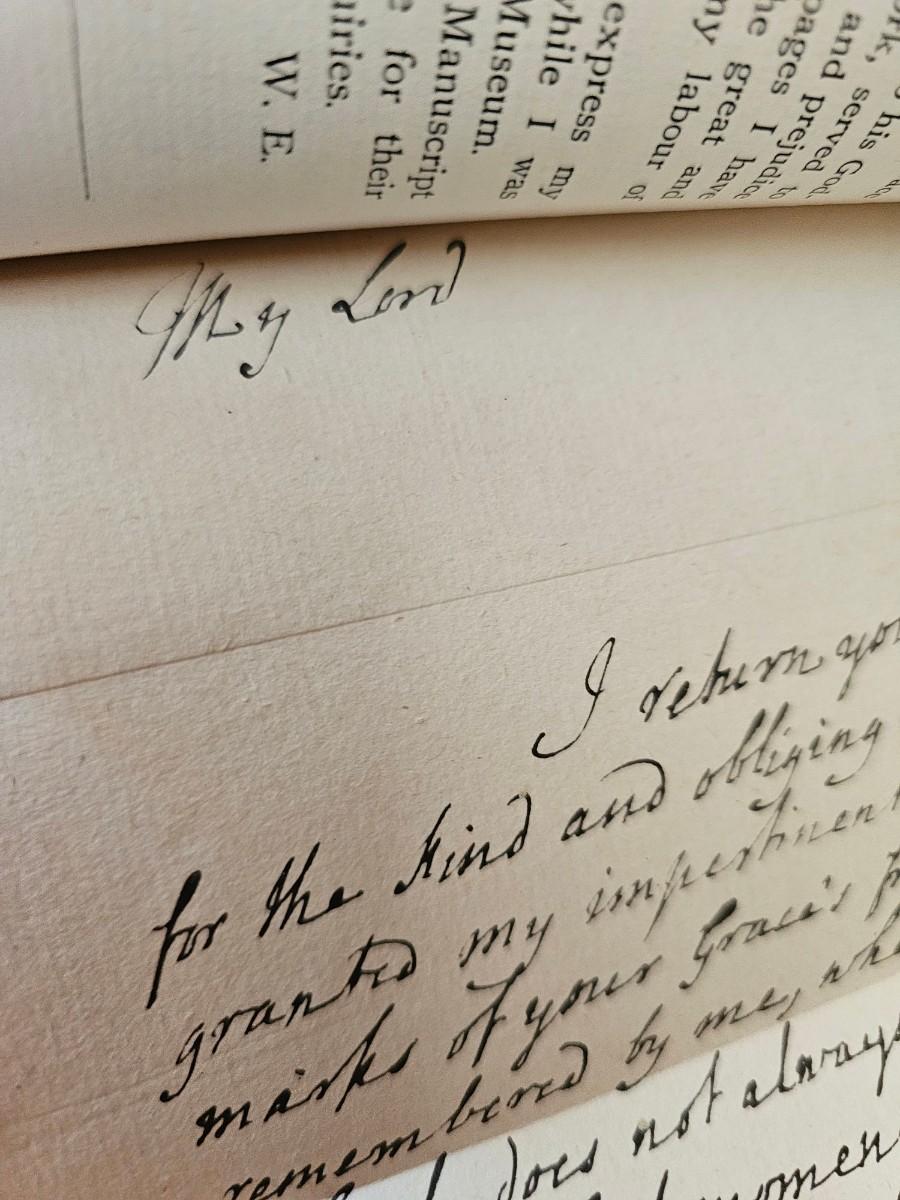 ork, his
and served God
pages prejudice to
he great I have
ny labour and
of
express my
while I was
Museum.
Manuscript
e for their
uiries.
W. E.
My Lord
I return you
for the kind and obliging
granted my impertinent
marks of your Grace's
remembered by me,
does not always